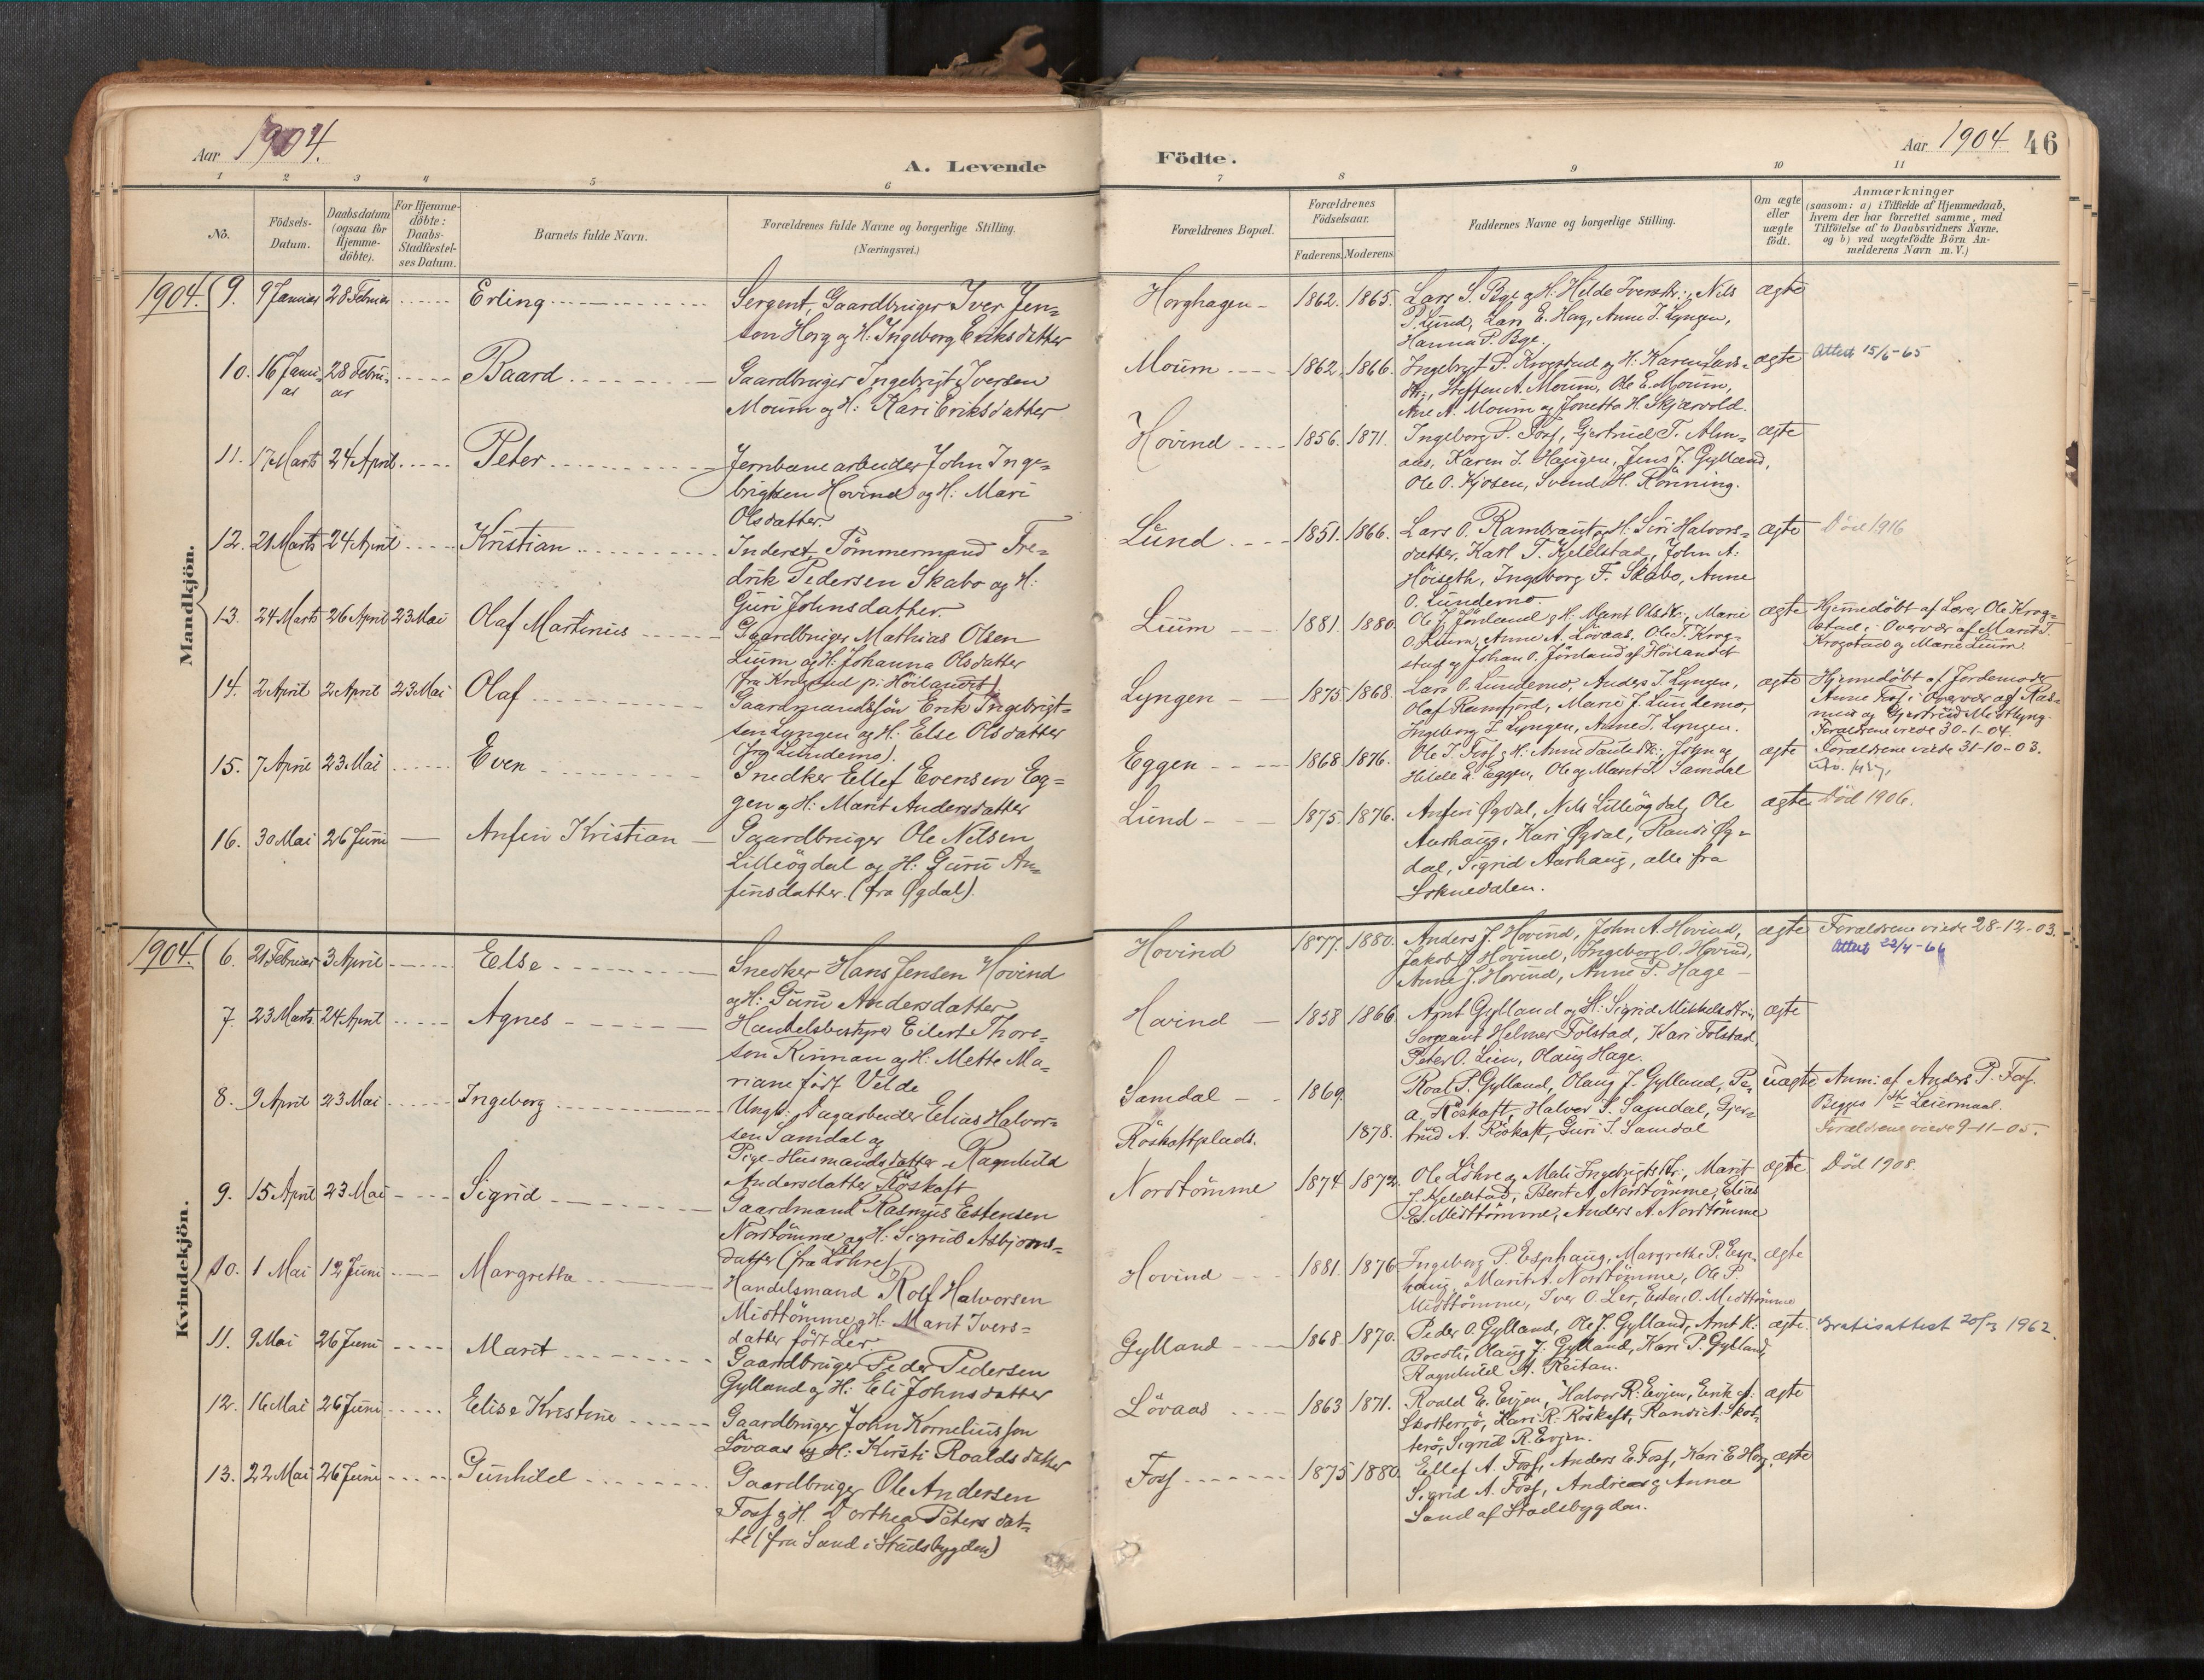 Aar 1904.
A. Levende
Födte.
Aar 1904 46
1 2 3 4 5 6 7 8 9 10 11
No.
Födsels-
Datum.
Daabsdatum
(ogsaa for
Hjemme-
döbte).
For Hjemme-
döbte:
Daabs-
Stadfæstel-
ses Datum.
Barnets fulde Navn.
Forældrenes fulde Navne og borgerlige Stilling.
(Næringsvei.)
Forældrenes Bopæl.
Forældrenes
Födselsaar.
Faderens. Moderens.
Faddernes Navne og borgerlige Stilling.
Om ægte
eller
uægte
født.
Anmærkninger
(saasom: a) i Tilfælde af Hjemmedaab,
hvem der har forrettet samme, med
Tilföielse af to Daabsvidners Navne,
og b) ved uægtefödte Börn An-
melderens Navn m. V.)
Mandkjön.
1904. 9. 9 Januar 28 Februar Erling
Sergent, Gaardbruger Iver Jen-
sen Horg og H. Ingeborg Eriksdatter
Horghagen 1862. 1865.
Lars S. Bye og H. Hilde Iversdtr., Nils
P. Lund, Lars E. Hag, Anne J. Lyngen,
Hanna P. Bye.
ægte
10. 16 Janu-
ar 28 Febru-
ar Baard
Gaardbruger Ingebrigt Iversen
Moum og H: Kari Eriksdatter
Moum 1862. 1866.
Ingebrigt P. Krogstad og H: Karen Lars-
dtr., Steffen A. Moum, Ole E. Moum,
Ane A. Moum og Jonetta H. Skjærvold.
ægte Attest 15/6-65
11. 17 Marts 24 April Peter
Jernbanearbeider John Inge-
brigtsen Hovind og H: Mari
Olsdatter.
Hovind 1856. 1871.
Ingeborg P. Foss, Gjertrud T. Alm-
aas, Karen J. Haugen, Jens J. Gylland,
Ole O. Kjosen, Svend H. Rönning.
ægte
12. 21 Marts 24 April Kristian
Inderst, Tömmermand Fre-
drik Pedersen Skabo og H:
Guri Johnsdatter.
Lund 1851. 1866.
Lars O. Rambraut og H: Siri Halvors-
datter, Karl T. Kjeldstad, John A.
Höiseth, Ingeborg F. Skabo, Anne
O. Lundemo
ægte Död 1916
13. 24 Marts 26 April 23 Mai Olaf Martinus
Gaardbruger Mathias Olsen
Lium og H: Johanna Olsdatter
(fra Krogstad på Höilandet)
Lium 1881. 1880.
Ole J. Jörland og H: Marit Olsdtr., Marie
O. Lium, Anne A. Lövaas, Ole T. Krog-
stad og Johan O. Jörland af Höilandet
ægte Hjemmedöbt af Lærer Ole Krog-
stad i Overvær af Marit T.
Krogstad og Marie Lium.
14. 2 April 2 April 23 Mai Olaf
Gaardmandssön Erik Ingebrigt-
sen Lyngen og H: Else Olsdatter
(fra Lundemo).
Lyngen 1875 1868.
Lars O. Lundemo, Anders J. Lyngen,
Olaf Ramfjord, Marie J. Lundemo,
Ingeborg I. Lyngen, Anne I. Lyngen.
ægte Hjemmedöbt af Jordemoder
Anne Foss i Overvær af Ras-
mus og Gjertrud Midtlyng.
Forældrene viede 30-1-04.
15. 7 April 23 Mai Even
Snedker Ellef Evensen Eg-
gen og H: Marit Andersdatter
Eggen 1868. 1876.
Ole J. Foss og H: Anne Paulsdtr., John og
Hilde E. Eggen, Ole og Marit J. Samdal
ægte Forældrene viede 31-10-03.
16. 30 Mai 26 Juni Anfin Kristian
Gaardbruger Ole Nilsen
Lilleögdal og H: Guru An-
finsdatter. (fra Øgdal).
Lund 1875. 1876.
Anfin Øgdal, Nils Lilleögdal, Ole
Aarhaug, Kari Øgdal, Randi Øg-
dal, Sigrid Aarhaug, alle fra
Soknedalen.
ægte Död 1906.
Kvindekjön.
1904. 6. 21 Februar 3 April Else
Snedker Hans Jensen Hovind
og H: Guru Andersdatter
Hovind 1877. 1880.
Anders J. Hovind, John A. Hovind,
Jakob J. Hovind, Ingeborg O. Hovind,
Anne J. Hovind, Anne P. Hage
ægte Forældrene viede 28-12-03.
Attest 22/4-66
7. 23 Marts 24 April Agnes
Handelsbestyrer Eilert Thore-
sen Rinnan og H: Mette Ma-
riane födt Velde
Hovind 1858 1866
Arnt Gylland og H: Sigrid Mikkelsdtr.,
Sergeant Helmer Folstad, Kari Folstad,
Peter O. Lien, Olaug Hage.
ægte
8. 9 April 23 Mai Ingeborg
Ungk: Dagarbeider Elias Halvor-
sen Samdal og
Pige-Husmandsdatter Ragnhild
Andersdatter Röskaft
Samdal 1869.
Röskaftplads. 1878.
Roal P. Gylland, Olaug J. Gylland, Pe.
A. Röskaft, Halvor S. Samdal, Gjer-
trud A. Röskaft, Guri J. Samdal
uægte Anm. af Anders P. Foss.
Begges 1ste Leiermaal.
Forældrene viede 9-11-05.
9. 15 April 23 Mai Sigrid
Gaardmand Rasmus Estensen
Nordtömme og H: Sigrid Asbjörns-
datter (fra Löhre)
Nordtömme 1874 1872
Ole Löhre og Mali Ingebrigtsdtr., Marit
J. Kjeldstad, Berit A. Nordtömme, Elias
E. Midttömme, Anders A. Nordtömme
ægte Död 1908.
10. 1 Mai 12 Juni Margretha
Handelsmand Rolf Halvorsen
Midttömme og H: Marit Ivers-
datter födt Ler
Hovind 1881. 1876
Ingeborg P. Esphaug, Margrethe P. Esp-
haug, Marit A. Nordtömme, Ole P.
Midttömme, Iver O. Ler, Esten O. Midttömme
ægte
11. 9 Mai 26 Juni Marit
Gaardbruger Peder Pedersen
Gylland og H: Eli Johnsdatter
Gylland 1868 1870.
Peder O. Gylland, Ole J. Gylland, Arnt K.
Bredli, Olaug J. Gylland, Kari P. Gylland,
Ragnhild A. Reitan.
ægte. Gratisattest 20/3 1962.
12. 16 Mai 26 Juni Elise Kristine
Gaardbruger John Korneliussen
Lövaas og H: Kirsti Roaldsdatter
Lövaas 1863 1871.
Roald E. Evjen, Halvor R. Evjen, Erik A.
Skotterö, Kari R. Röskaft, Randi A. Skot-
terö, Sigrid R. Evjen.
ægte
13. 22 Mai 26 Juni Gunhild
Gaardbruger Ole Andersen
Foss og H. Dorthea Petersdat-
ter (fra Sand i Stadsbygden)
Foss 1875 1880.
Ellef A. Foss, Anders E. Foss, Kari E. Horg,
Sigrid A. Foss, Andreas og Anna
Sand af Stadsbygden.
ægte